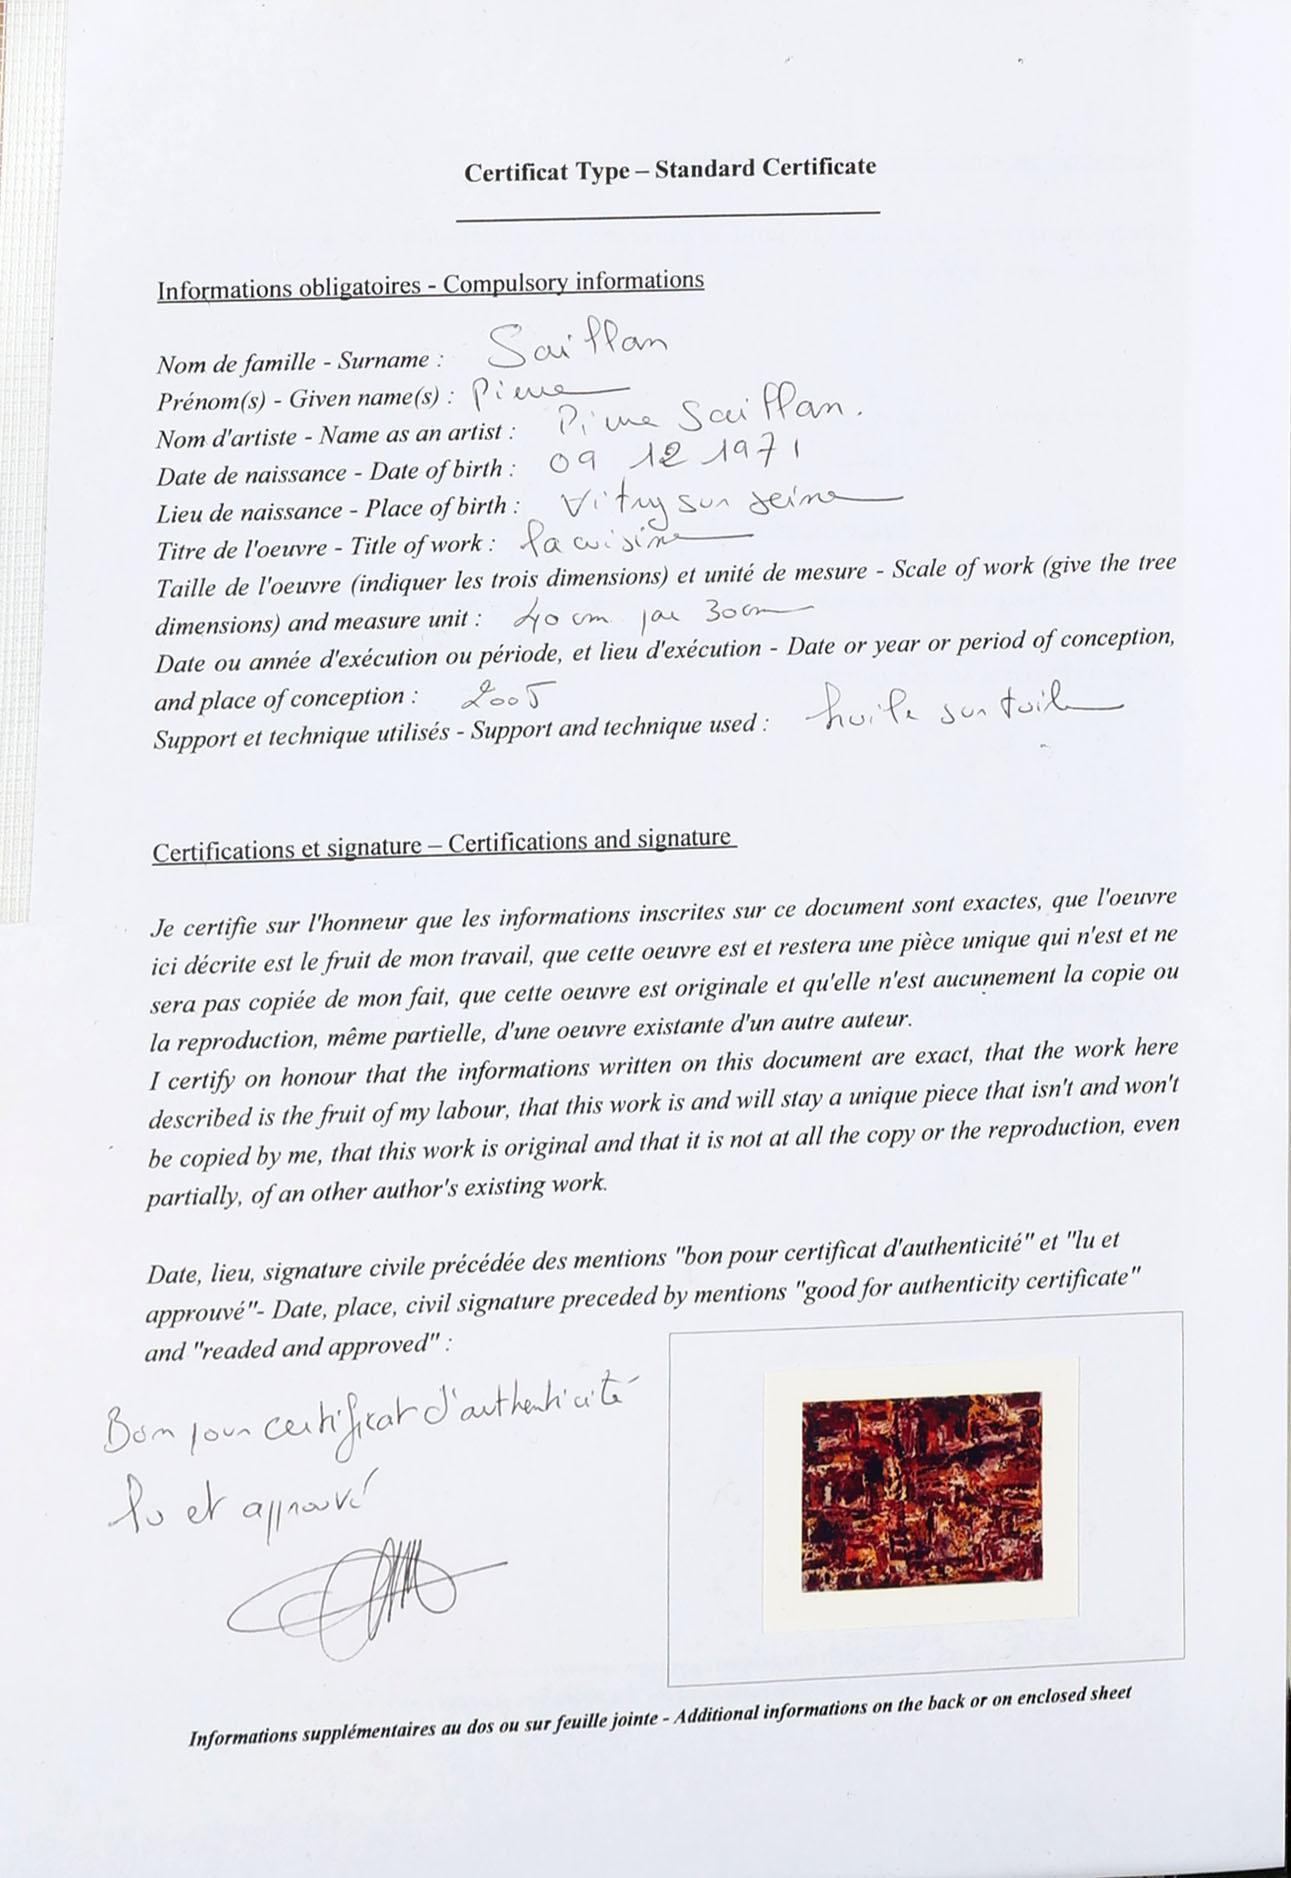 Certificat Type – Standard Certificate
Informations obligatoires - Compulsory informations
Nom de famille - Surname : Saillan
Prénom(s) - Given name(s) : Pierre
Nom d'artiste - Name as an artist : Pierre Saillan.
Date de naissance - Date of birth : 09 12 1971
Lieu de naissance - Place of birth : Vitry sur seine
Titre de l'oeuvre - Title of work : la cuisine
Taille de l'oeuvre (indiquer les trois dimensions) et unité de mesure - Scale of work (give the tree
dimensions) and measure unit : 40 cm par 30cm
Date ou année d'exécution ou période, et lieu d'exécution - Date or year or period of conception,
and place of conception : 2005
Support et technique utilisés - Support and technique used : huile sur toile
Certifications et signature – Certifications and signature
Je certifie sur l'honneur que les informations inscrites sur ce document sont exactes, que l'oeuvre
ici décrite est le fruit de mon travail, que cette oeuvre est et restera une pièce unique qui n'est et ne
sera pas copiée de mon fait, que cette oeuvre est originale et qu'elle n'est aucunement la copie ou
la reproduction, même partielle, d'une oeuvre existante d'un autre auteur.
I certify on honour that the informations written on this document are exact, that the work here
described is the fruit of my labour, that this work is and will stay a unique piece that isn't and won't
be copied by me, that this work is original and that it is not at all the copy or the reproduction, even
partially, of an other author's existing work.
Date, lieu, signature civile précédée des mentions "bon pour certificat d'authenticité" et "lu et
approuvé"- Date, place, civil signature preceded by mentions "good for authenticity certificate"
and "readed and approved" :
Bon pour certificat d'authenticité
lu et approuvé
Informations supplémentaires au dos ou sur feuille jointe - Additional informations on the back or on enclosed sheet